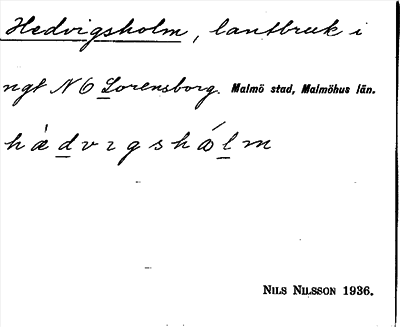 Hedvigsholm, lantbruk i
ngt N O Lorensborg. Malmö stad, Malmöhus län.
hæ̀dvıgshólm
NILS NILSSON 1936.